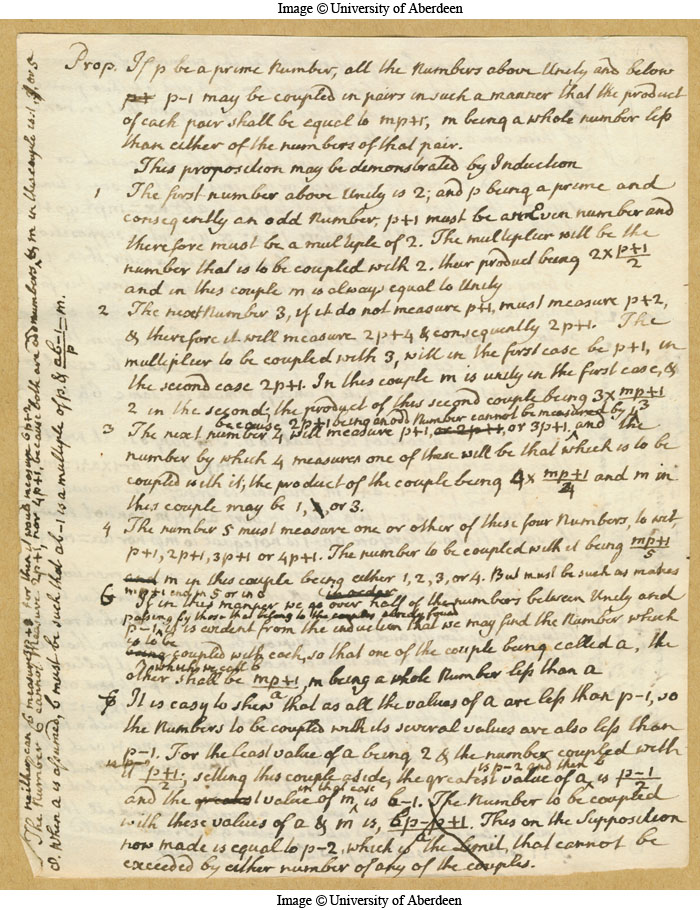 Image © University of Aberdeen
Prop. If p be a prime Number, all the Numbers above Unity and below
p-1 may be coupled in pairs in such a manner that the product
of each pair shall be equal to mp+1, m being a whole number less
than either of the numbers of that pair.
This proposition may be demonstrated by Induction
1 The first number above Unity is 2; and p being a prime and
consequently an odd Number, p+1 must be an Even number and
therefore must be a multiple of 2. The multiplier will be the
number that is to be coupled with 2. their product being 2 x p+1/2
and in this couple m is always equal to Unity
2 The next Number 3, if it do not measure p+1, must measure p+2,
& therefore it will measure 2p+4 & consequently 2p+1. The
multiplier to be coupled with 3, will in the first case be p+1, in
the second case 2p+1. In this couple m is unity in the first case, &
2 in the second; the product of this second couple being 3 x mp+1/3
because 2p+1 being an odd Number cannot be measured by 4
3 The next number 4 will measure p+1, or 2p+1, or 3p+1, and the
number by which 4 measures one of these will be that which is to be
coupled with it, the product of the couple being 4 x mp+1/4 and m in
this couple may be 1, or 3.
4 The number 5 must measure one or other of these four Numbers, to wit,
p+1, 2p+1, 3p+1 or 4p+1. The number to be coupled with it being mp+1/5
and m in this couple being either 1, 2, 3, or 4. But must be such as makes
mp+1 end in 5 or in 0
6 If in this manner we go over half of the numbers between Unity and
passing by those that belong to the couples already found
p-1, it is evident from the induction that we may find the Number which
is to be
being coupled with each, so that one of the couple being called a, the
which we call b
other shall be mp+1/a, m being a whole Number less than a
It is easy to shew that as all the values of a are less than p-1, so
the Numbers to be coupled with its several values are also less than
p-1. For the least value of a being 2 & the number coupled with
is p-2 and then b
it p+1/2; setting this couple aside, the greatest value of a is p-1/2
in that case
and the greatest value of m is b-1. The Number to be coupled
with these values of a & m is, bp-p+1/a. This on the Supposition
now made is equal to p-2, which is the Limit, that cannot be
exceeded by either number of any of the couples.
The Number 6 cannot measure 2p+1, nor 4p+1, because both are odd numbers, & m in this couple is 1, or 5
neither can 6 measure 3p+1 for then it would measure 6p+2
8. When a is assumed, b must be such that ab-1 is a multiple of p. & ab-1/p = m.
Image © University of Aberdeen